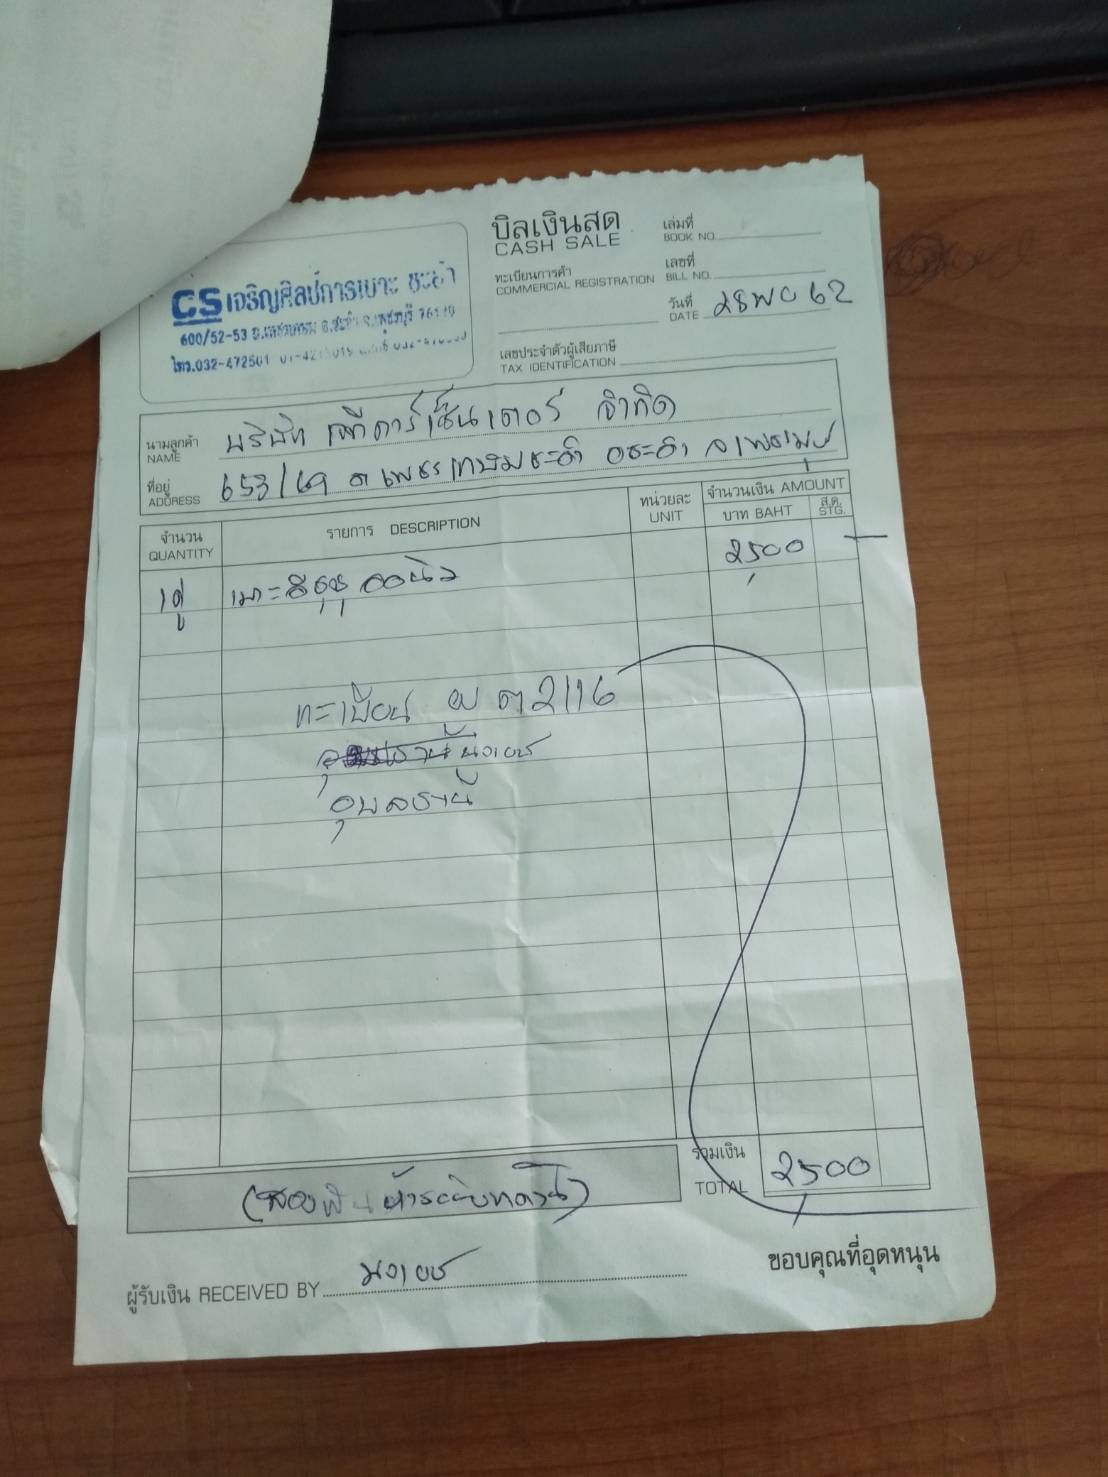 บิลเงินสด
CASH SALE
เล่มที่
BOOK NO.
ทะเบียนการค้า
COMMERCIAL REGISTRATION
เลขที่
BILL NO.
วันที่
DATE 28 พค 62
เลขประจำตัวผู้เสียภาษี
TAX IDENTIFICATION
CS เจริญศิลป์การเบาะ ชะอำ
600/52-53 อ.ชะอำ จ.เพชรบุรี
โทร.032-472501
นามลูกค้า
NAME บริษัท คาร์เซ็นเตอร์ จำกัด
ที่อยู่
ADDRESS 653/ ถ เพชรเกษม ชะอำ อ ชะอำ จ เพชรบุรี
จำนวน
QUANTITY
รายการ DESCRIPTION
หน่วยละ
UNIT
จำนวนเงิน AMOUNT
บาท BAHT
ส.ต.
STG.
เบาะอีซูซุ 2,500 —
ทะเบียน ผต 2116
อุบลธานี
รวมเงิน
TOTAL 2,500
(สองพันห้าร้อยบาทถ้วน)
ผู้รับเงิน RECEIVED BY มงเยช
ขอบคุณที่อุดหนุน